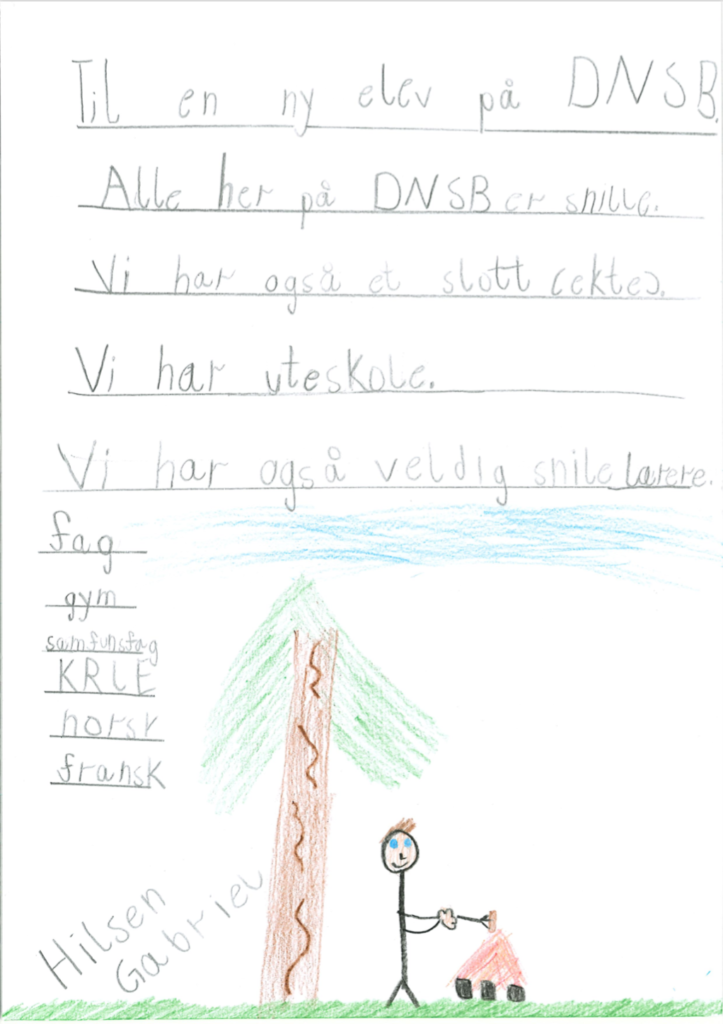 Til en ny elev på DNSB.
Alle her på DNSB er snille.
Vi har også et slott (ekte).
Vi har uteskole.
Vi har også veldig snile lærere.
fag
gym
samfunsfag
KRLE
norsk
fransk
Hilsen
Gabriel